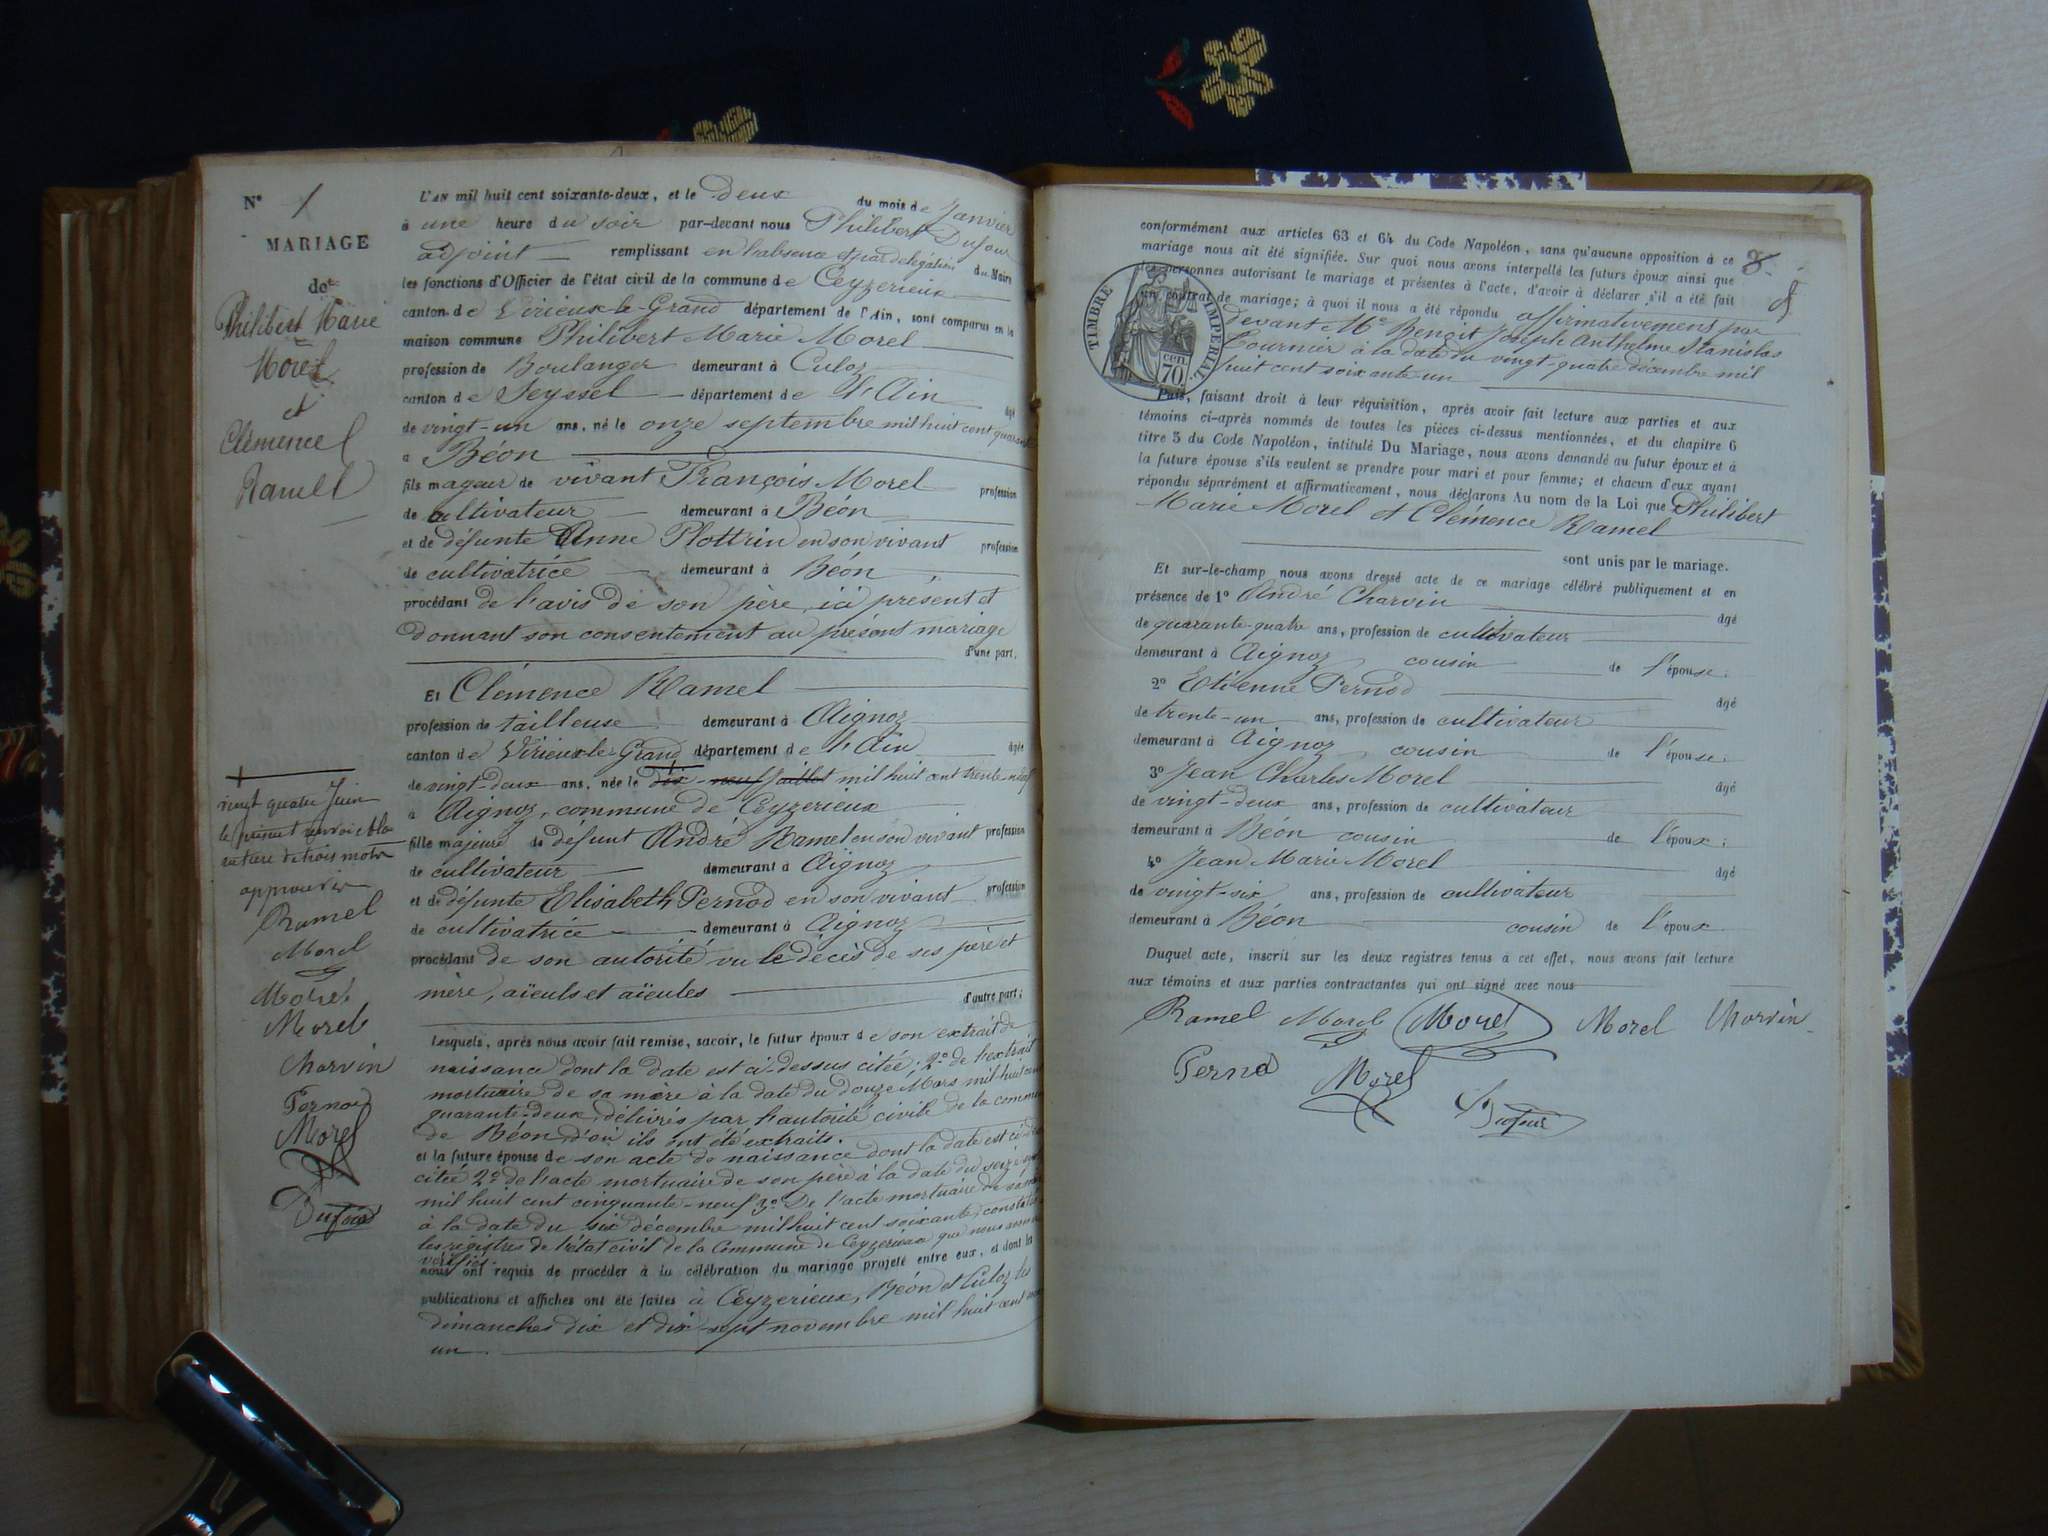 N° 1
MARIAGE
de
Philibert Marie
Morel
et
Clémence
Ramel
vingt quatre Juin
le présent renvoi et la
rature de trois mots
approuvés
Ramel
Morel
Morel
Morel
Charvin
Pernod
Morel
Dufour
L'AN mil huit cent soixante-deux, et le Deux du mois de Janvier
à une heure du soir par-devant nous Philibert Dufour
adjoint remplissant en l'absence et par délégation du Maire
les fonctions d'Officier de l'état civil de la commune de Ceyzerieux
canton de Virieux-le-Grand département de l'Ain, sont comparus en la
maison commune Philibert Marie Morel
profession de Boulanger demeurant à Culoz
canton de Seyssel département de l'Ain âgé
de vingt-un ans, né le onze septembre mil huit cent quarante
à Béon
fils majeur de vivant François Morel profession
de cultivateur demeurant à Béon
et de défunte Anne Plottrin en son vivant profession
de cultivatrice demeurant à Béon
procédant de l'avis de son père, ici présent et
donnant son consentement au présent mariage
d'une part,
Et Clémence Ramel
profession de tailleuse demeurant à Aignoz
canton de Virieux-le-Grand département de l'Ain âgée
de vingt-deux ans, née le dix-neuf juillet mil huit cent trente-neuf
à Aignoz, commune de Ceyzerieux
fille majeure de défunt André Ramel en son vivant profession
de cultivateur demeurant à Aignoz
et de défunte Elisabeth Pernod en son vivant profession
de cultivatrice demeurant à Aignoz
procédant de son autorité vu le décès de ses père et
mère, aïeuls et aïeules d'autre part;
Lesquels, après nous avoir fait remise, savoir, le futur époux de son extrait de
naissance dont la date est ci-dessus citée; 2° de l'extrait
mortuaire de sa mère à la date du douze Mars mil huit cent
quarante-deux, délivrés par l'autorité civile de la commune
de Béon, d'où ils ont été extraits.
et la future épouse de son acte de naissance dont la date est ci-
citée 2° de l'acte mortuaire de son père à la date du seize
mil huit cent cinquante-neuf 3° De l'acte mortuaire de sa mère
à la date du six décembre mil huit cent soixante, constatés
les registres de l'état civil de la Commune de Ceyzerieux que nous avons
vérifiés.
nous ont requis de procéder à la célébration du mariage projeté entre eux, et dont les
publications et affiches ont été faites à Ceyzerieux, Béon et Culoz les
dimanches dix et dix-sept novembre mil huit cent
un.
8
conformément aux articles 63 et 64 du Code Napoléon, sans qu'aucune opposition à ce
mariage nous ait été signifiée. Sur quoi nous avons interpellé les futurs époux ainsi que
les personnes autorisant le mariage et présentes à l'acte, d'avoir à déclarer s'il a été fait
un contrat de mariage; à quoi il nous a été répondu affirmativement par
devant Me Benoit Joseph Anthelme Stanislas
Tournier à la date du vingt-quatre décembre mil
huit cent soixante-un
TIMBRE IMPERIAL
70 cen.
Puis, faisant droit à leur réquisition, après avoir fait lecture aux parties et aux
témoins ci-après nommés de toutes les pièces ci-dessus mentionnées, et du chapitre 6
titre 5 du Code Napoléon, intitulé Du Mariage, nous avons demandé au futur époux et à
la future épouse s'ils veulent se prendre pour mari et pour femme; et chacun d'eux ayant
répondu séparément et affirmativement, nous déclarons Au nom de la Loi que Philibert
Marie Morel et Clémence Ramel
sont unis par le mariage.
Et sur-le-champ nous avons dressé acte de ce mariage célébré publiquement et en
présence de 1° André Charvin âgé
de quarante-quatre ans, profession de cultivateur
demeurant à Aignoz cousin de l'épouse;
2° Etienne Pernod âgé
de trente-un ans, profession de cultivateur
demeurant à Aignoz cousin de l'épouse;
3° Jean Charles Morel âgé
de vingt-deux ans, profession de cultivateur
demeurant à Béon cousin de l'époux;
4° Jean Marie Morel âgé
de vingt-six ans, profession de cultivateur
demeurant à Béon cousin de l'époux
Duquel acte, inscrit sur les deux registres tenus à cet effet, nous avons fait lecture
aux témoins et aux parties contractantes qui ont signé avec nous
Ramel Morel Morel Morel Charvin
Pernod Morel Dufour